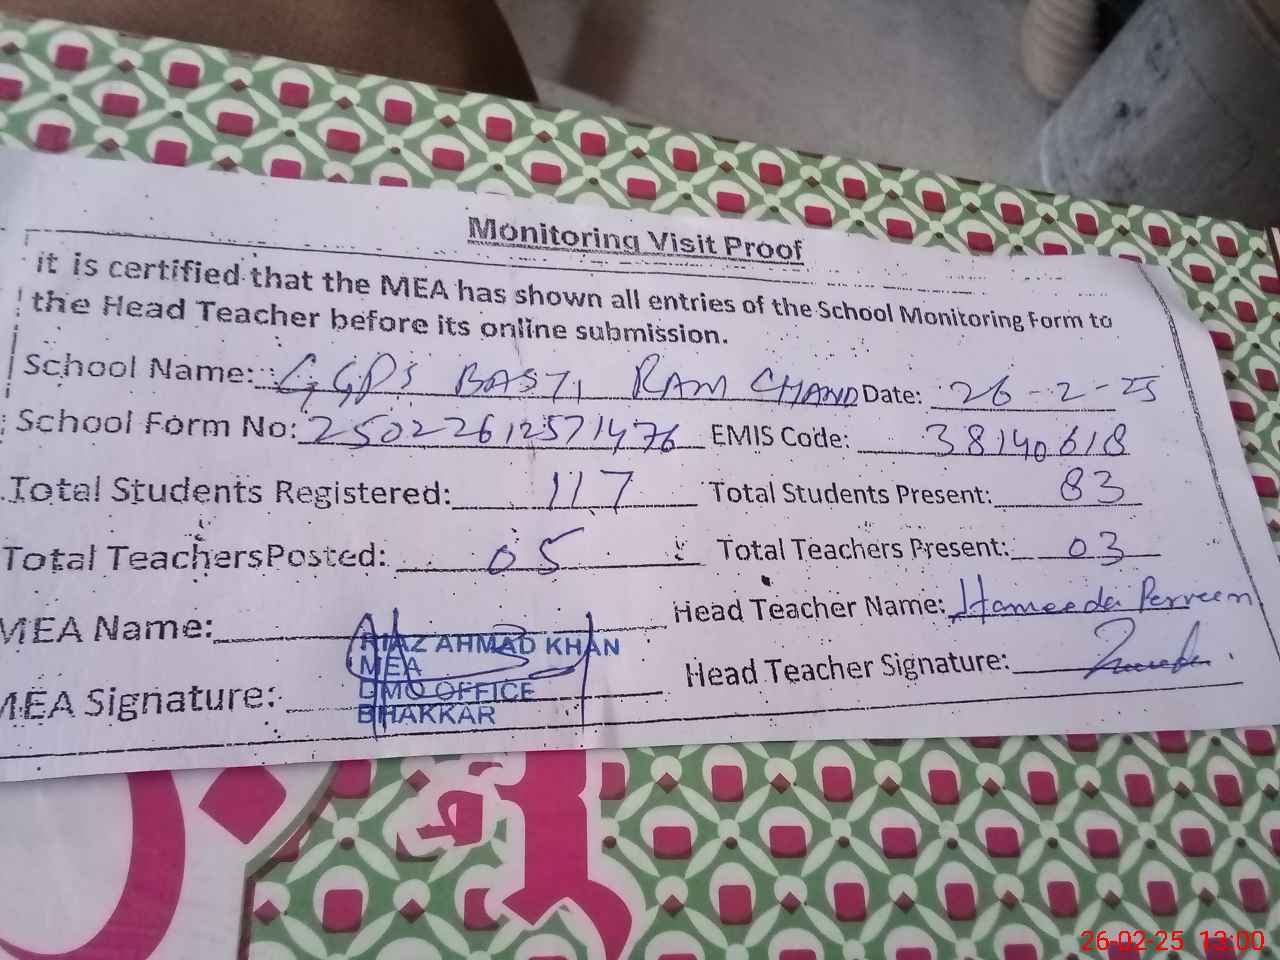 Monitoring Visit Proof
it is certified that the MEA has shown all entries of the School Monitoring Form to
the Head Teacher before its online submission.
School Name: GGPS BASTI RAM CHAND Date: 26-2-25
School Form No: 25022612571476 EMIS Code: 38140618
Total Students Registered: 117 Total Students Present: 83
Total TeachersPosted: 05 Total Teachers Present: 03
MEA Name: Head Teacher Name: Hameeda Perveen
RIAZ AHMAD KHAN
MEA
MEA Signature: Head Teacher Signature:
DMO OFFICE
BHAKKAR
26-02-25 13:00